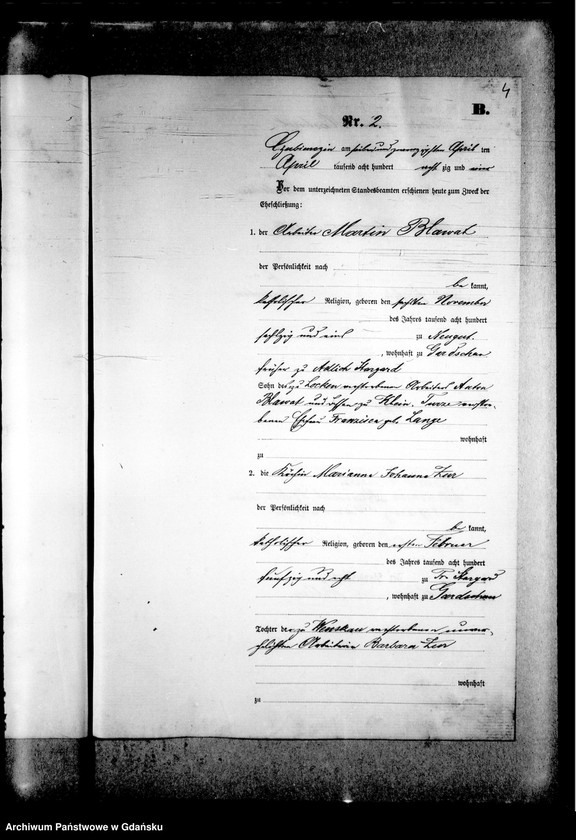 4
B.
Nr. 2.
am siebenundzwanzigsten April ten
April tausend acht hundert acht zig und
Vor dem unterzeichneten Standesbeamten erschienen heute zum Zweck der
Eheschließung:
1. der Arbeiter Martin Blawat
der Persönlichkeit nach
be kannt,
katholischer Religion, geboren den sechsten November
des Jahres tausend acht hundert
sechzig und eins zu Neugut
, wohnhaft zu Gardschau
früher zu Adlich Stargard
Sohn des zu Locken verstorbenen Arbeiters Anton
Blawat und dessen zu Klein Turze verstor-
benen Ehefrau Franzisca geb. Lange
wohnhaft
zu
2. die Köchin Marianna Johanna
der Persönlichkeit nach
be kannt,
katholischer Religion, geboren den ersten Februar
des Jahres tausend acht hundert
fünfzig und acht zu Pr. Stargard
, wohnhaft zu Gardschau
Tochter der zu verstorbenen unver-
ehelichten Arbeiterin Barbara
wohnhaft
zu
Archiwum Państwowe w Gdańsku